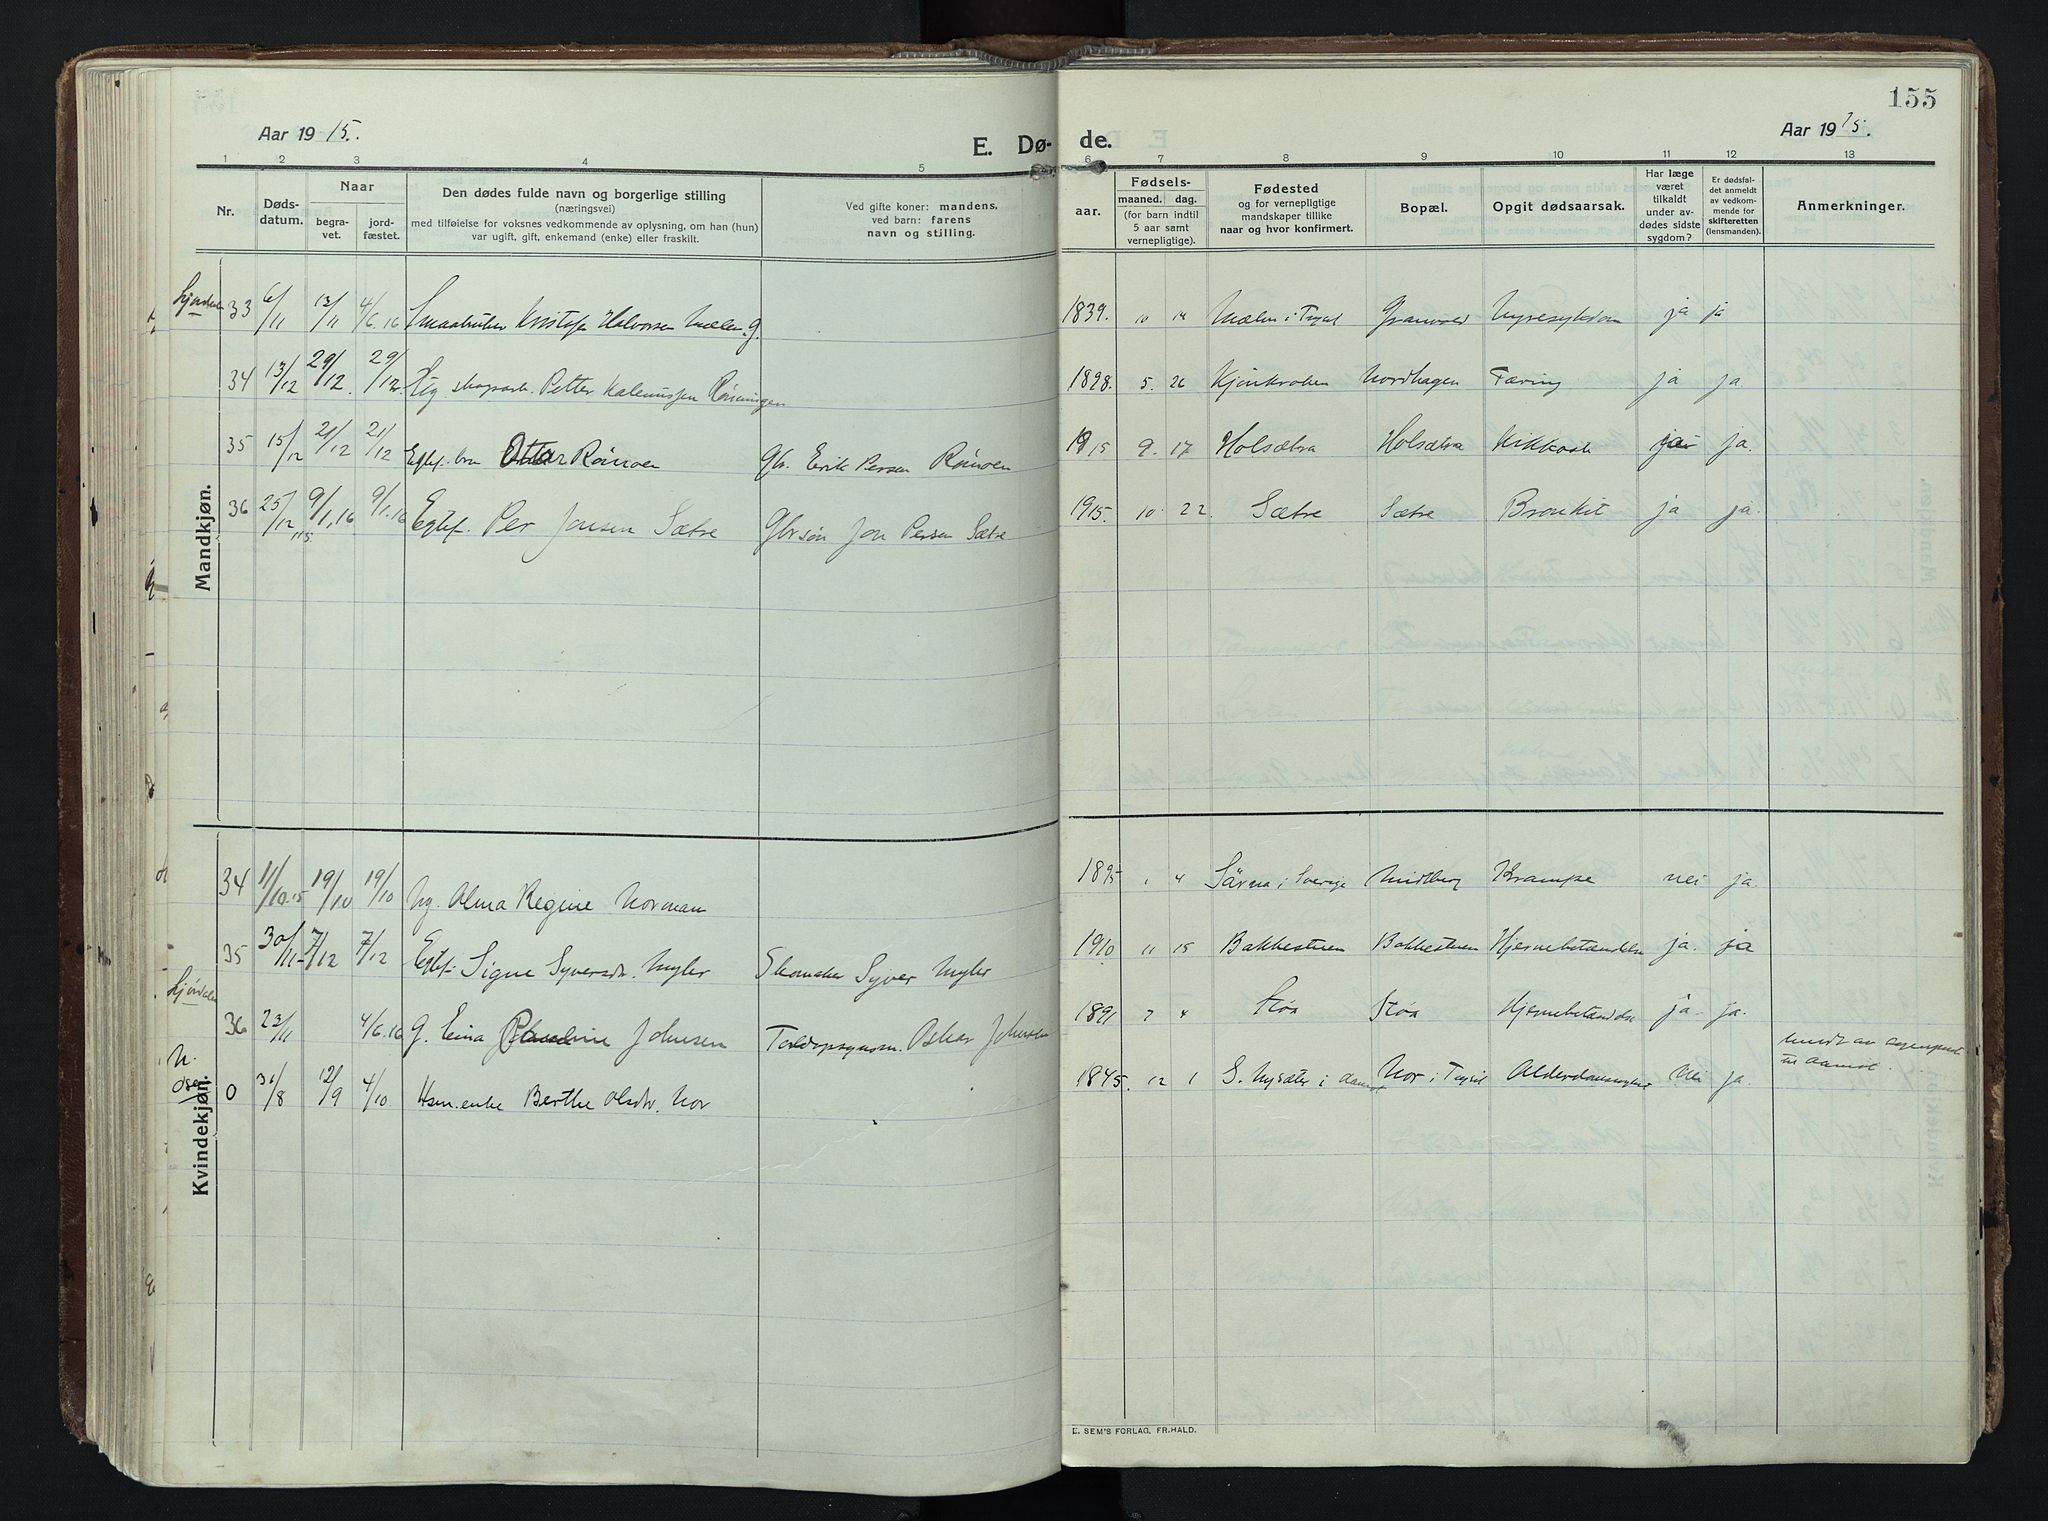 155
Aar 1915.
E. Dø- de.
Aar 1915.
1 2 3 4 5 6 7 8 9 10 11 12 13
Nr.
Døds-
datum.
Naar
begra-
vet.
jord-
fæstet.
Den dødes fulde navn og borgerlige stilling
(næringsvei)
med tilføielse for voksnes vedkommende av oplysning, om han (hun)
var ugift, gift, enkemand (enke) eller fraskilt.
Ved gifte koner: mandens,
ved barn: farens
navn og stilling.
Fødsels-
aar.
maaned. dag.
(for barn indtil
5 aar samt
vernepligtige).
Fødested
og for vernepligtige
mandskaper tillike
naar og hvor konfirmert.
Bopæl.
Opgit dødsaarsak.
Har læge
været
tilkaldt
under av-
dødes sidste
sygdom?
Er dødsfal-
det anmeldt
av vedkom-
mende for
skifteretten
(lensmanden).
Anmerkninger.
Mandkjøn.
33 6/11 13/11 4/6.16 Kristofer Halvorsen Mælen. g. 1839. 10 14 Mælen i Trysil Granvold Nyresykdom ja ja
34 13/12 29/12. 29/12. Ug. skogsarb. Petter Kalenussen Rønningen 1898. 5. 26 Nordhagen Tæring ja ja.
35 15/12 21/12 21/12 Egtef. Ottar Rønoen Gbr. Erik Persen Rønoen 1915 9. 17 Holsætra Holsætra Kikhoste ja.
36 25/12.15. 9/1.16 9/1.16 Egtef. Per Jonsen Sætre Gbrsøn Jon Persen Sætre 1915. 10. 22. Sætre Sætre Bronkit ja ja.
Kvindekjøn.
34 11/10.15 19/10 19/10 Ug. Alma Regine Norman 1895 1 4 Särna i Sverige Midtberg Krampe nei ja.
35 30/11 7/12 7/12 Egtef. Signe Syversdtr. Myler Skomaker Syver Myler 1910 11 15 Bakkestuen Bakkestuen Hjernebetændelse ja. ja
36 23/11 4/6.16 G. Johnsen Oskar Johnsen 1891 7 4 Støa Støa Hjernebetændelse ja. ja.
N. Osen 0 31/8 12/9 4/10 Hsm.enke Berthe Olsdtr. Nor 1845. 12 1 Nor i Trysil nei ja.
E. SEM'S FORLAG, FR.HALD.